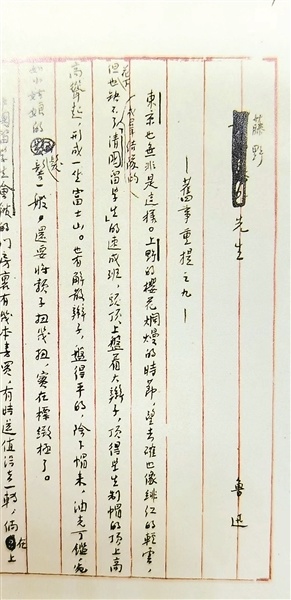 藤野先生
—舊事重提之九—
魯迅
東京也無非是這樣。上野的櫻花爛熳的時節,望去確也像緋紅的輕雲,
但花下也缺不了成群結隊的「清國留學生」的速成班,頭頂上盤着大辮子,頂得學生制帽的頂上高
高聳起,形成一座富士山。也有解散辮子,盤得平的,除下帽來,油光可鑑,宛
如小姑娘的髮髻一般,還要將頸子扭幾扭,實在標緻極了。
國留學生會館的門房裏有幾本書買,有時還值得去一轉,倘在上